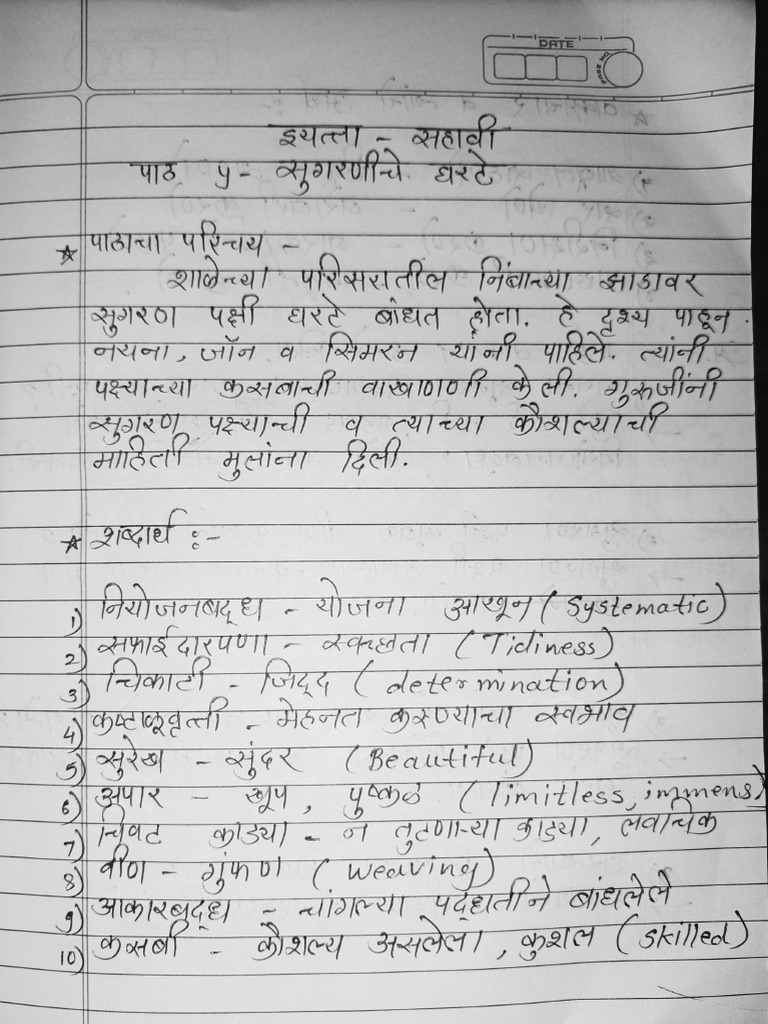 DATE
PAGE NO.
इयत्ता - सहावी
पाठ ५ - सुगरणीचे घरटे
★ पाठाचा परिचय -
शाळेच्या परिसरातील निंबाच्या झाडावर
सुगरण पक्षी घरटे बांधत होता. हे दृश्य पाहून
नयना, जॉन व सिमरन यांनी पाहिले. त्यांनी
पक्ष्याच्या कसबाची वाखाणणी केली. गुरुजींनी
सुगरण पक्ष्याची व त्याच्या कौशल्याची
माहिती मुलांना दिली.
★ शब्दार्थ :-
1) नियोजनबद्ध - योजना आखून (Systematic)
2) सफाईदारपणा - स्वच्छता (Tidiness)
3) चिकाटी - जिद्द (determination)
4) कष्टाळूवृत्ती - मेहनत करण्याचा स्वभाव
5) सुरेख - सुंदर (Beautiful)
6) अपार - खूप, पुष्कळ (limitless, immens)
7) चिवट काड्या - न तुटणाऱ्या काड्या, लवचिक
8) वीण - गुंफण (weaving)
9) आकारबद्ध - चांगल्या पद्धतीने बांधलेले
10) कसबी - कौशल्य असलेला, कुशल (skilled)